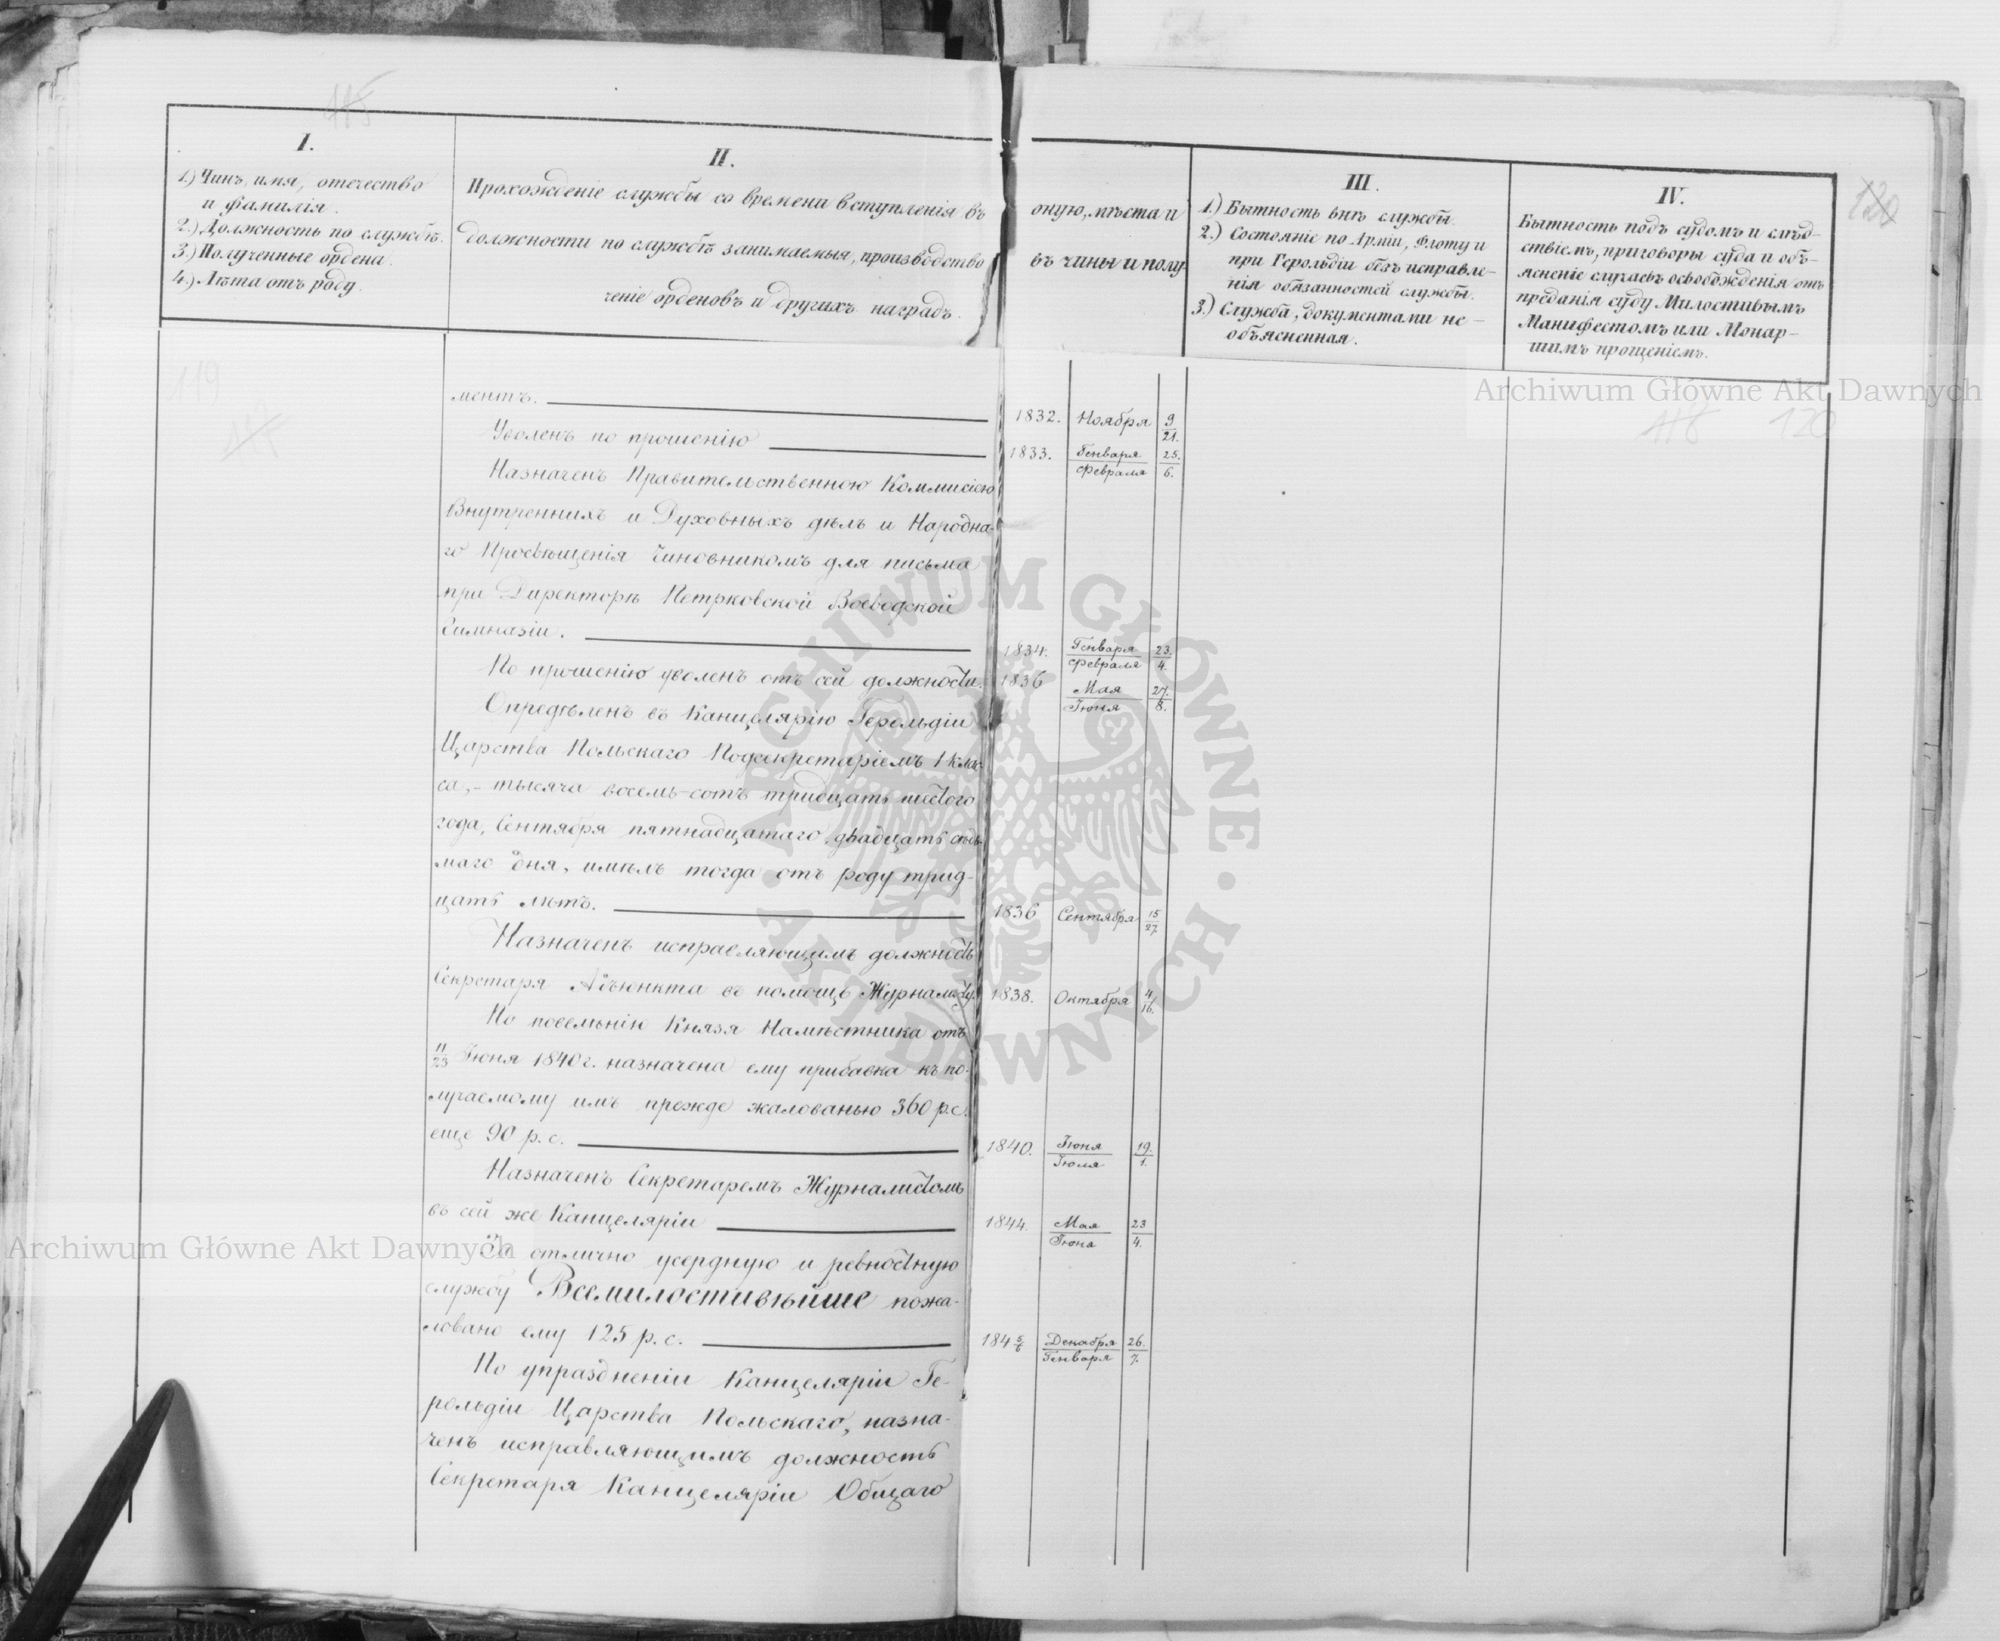 115
I.
1.) Чинъ, имя, отечество
и фамилія.
2.) Должность по службѣ.
3.) Полученные ордена.
4.) Лѣта отъ роду.
II.
Прохожденіе службы со времени вступленія въ оную, мѣста и
должности по службѣ занимаемыя, производство въ чины и полу-
ченіе орденовъ и другихъ наградъ.
III.
1.) Бытность внѣ службы.
2.) Состояніе по Арміи, Флоту и
при Герольдіи безъ исправле-
нія обязанностей службы.
3.) Служба, документами не-
объясненная.
IV.
Бытность подъ судомъ и слѣд-
ствіемъ, приговоры суда и объ-
ясненіе случаевъ освобожденія отъ
преданія суду Милостивымъ
Манифестомъ или Монар-
шимъ прощеніемъ.
120
119
117
118 120
ментъ. 1832. Ноября 9/21.
Уволенъ по прошенію 1833. Генваря/Февраля 25./6.
Назначенъ Правительственною Коммисіею
Внутреннихъ и Духовныхъ дѣлъ и Народна-
го Просвѣщенія Чиновникомъ для письма
при Директорѣ Петрковской Воеводской
Гимназіи. 1834. Генваря/Февраля 23./4.
По прошенію уволенъ отъ сей должности. 1836 Мая/Іюня 27./8.
Опредѣленъ въ Канцелярію Герольдіи
Царства Польскаго Подсекретаріемъ 1 клас-
са,- тысяча восемь-сотъ тридцать шестого
года, Сентября пятнадцатаго двадцать седь-
маго дня, имѣлъ тогда отъ роду трид-
цать лѣтъ. 1836 Сентября 15/27.
Назначенъ исправляющимъ должность
Секретаря Адъюнкта въ помощь Журналисту. 1838. Октября 4/16.
По повелѣнію Князя Намѣстника отъ
11/23 Іюня 1840 г. назначена ему прибавка къ по-
лучаемому имъ прежде жалованью 360 р.с.
еще 90 р. с. 1840. Іюня/Іюля 19./1.
Назначенъ Секретаремъ Журналистомъ
въ сей же Канцеляріи 1844. Мая/Іюня 23/4.
За отлично усердную и ревностную
службу Всемилостивѣйше пожа-
ловано ему 125 р. с. 184 5/6 Декабря/Генваря 26./7.
По упраздненіи Канцеляріи Ге-
рольдіи Царства Польскаго, назна-
ченъ исправляющимъ должность
Секретаря Канцеляріи Общаго
Archiwum Główne Akt Dawnych
Archiwum Główne Akt Dawnych
ARCHIWUM GŁÓWNE AKT DAWNYCH